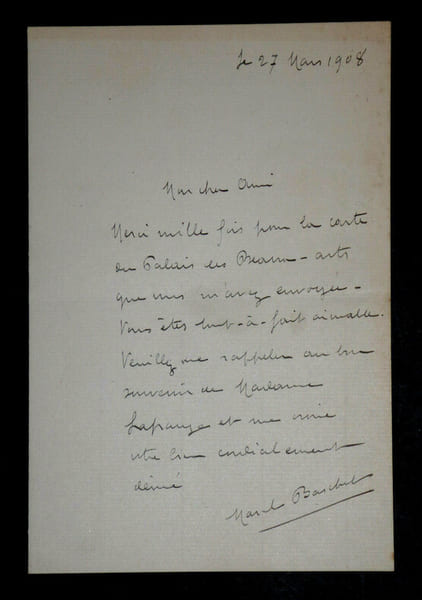 Le 27 Mars 1908
Mon cher Ami
Merci mille fois pour la carte
du Palais des Beaux-arts
que vous m'avez envoyée -
Vous êtes tout-à-fait aimable.
Veuillez me rappeler au bon
souvenir de Madame
Lapauze et me croire
votre bien cordialement
dévoué
Marcel Baschet